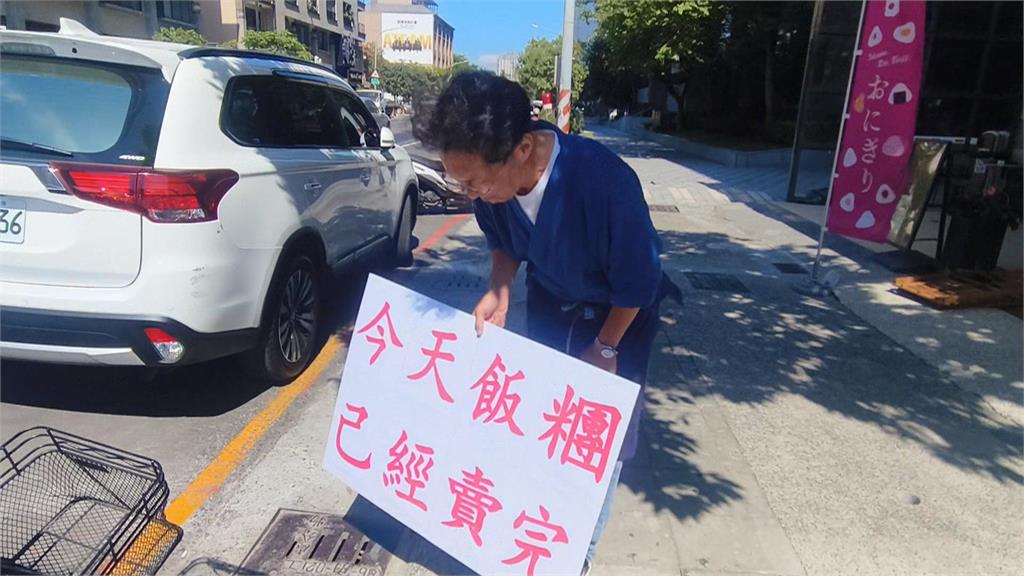 今天飯糰
已經賣完
おにぎり
36
4WD